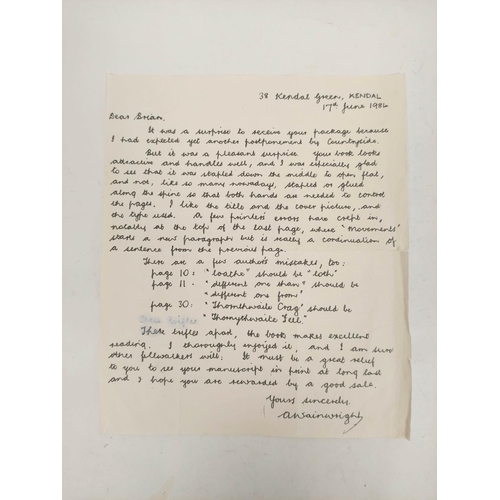 38 Kendal Green, KENDAL
17th June 1986
Dear Brian,
It was a surprise to receive your package because
I had expected yet another postponement by Countryside.
But it was a pleasant surprise. Your book looks
attractive and handles well, and I was especially glad
to see that it was stapled down the middle to open flat,
and not, like so many nowadays, stapled or glued
along the spine so that both hands are needed to control
the pages. I like the title and the cover picture, and
the type used. A few printers' errors have crept in,
notably at the top of the last page, where "Movements"
starts a new paragraph but is really a continuation of
a sentence from the previous page.
There are a few author's mistakes, too:
page 10: "loathe" should be "loth"
page 11 - "different one than" should be
"different one from"
page 30: "Thornthwaite Crag" should be
"Thornythwaite Fell."
These trifles apart, the book makes excellent
reading. I thoroughly enjoyed it, and I am sure
other fellwalkers will. It must be a great relief
to you to see your manuscript in print at long last
and I hope you are rewarded by a good sale.
Yours sincerely,
AWainwright